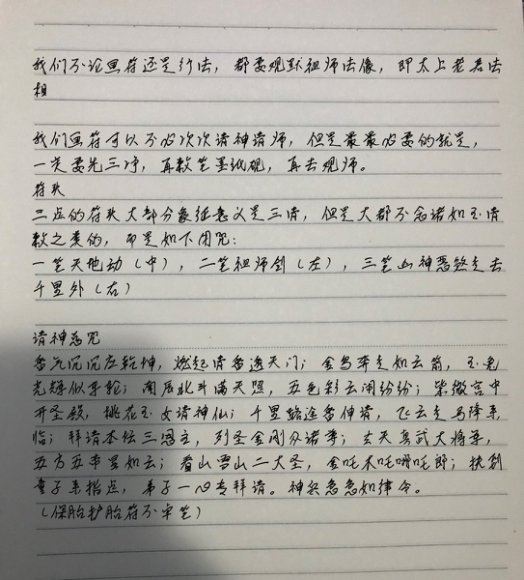 我们不论画符还是行法，都要观默祖师法像，即太上老君法
相
我们画符可以不必次次请神请师，但是最最必要的就是，
一定要先三净，再敕笔墨纸砚，再去观师。
符头
三点的符头大部分象征意义是三清，但是大都不念诸如玉清
敕之类的，而是如下用咒：
一笔天地动（中），二笔祖师剑（左），三笔凶神恶煞走去
千里外（右）
请神总咒
香气沉沉应乾坤，燃起清香透天门；金鸟奔走如云箭，玉兔
光辉似车轮；南辰北斗满天照，五色彩云闹纷纷；紫微宫中
开圣殿，桃花玉女请神仙；千里路途香伸请，飞云走马降来
临；拜请本坛三恩主，列圣金刚众诸尊；玄天真武大将军，
五方五帝显如云；香山雪山二大圣，金吒木吒哪吒郎；扶到
童子来指点，弟子一心专拜请。神兵急急如律令。
（保胎护胎符不牢笔）